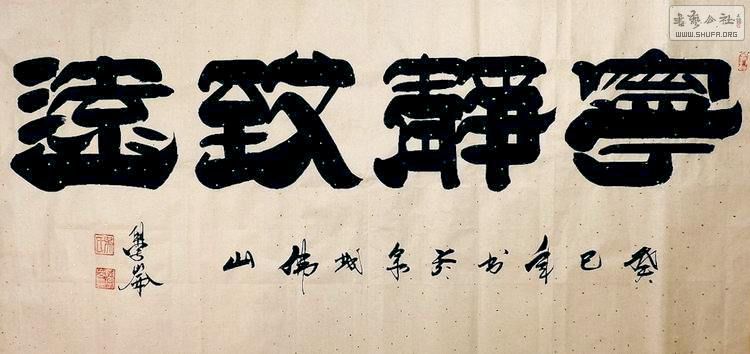 寧靜致遠
癸巳年书于泉城佛山
书艺公社
WWW.SHUFA.ORG